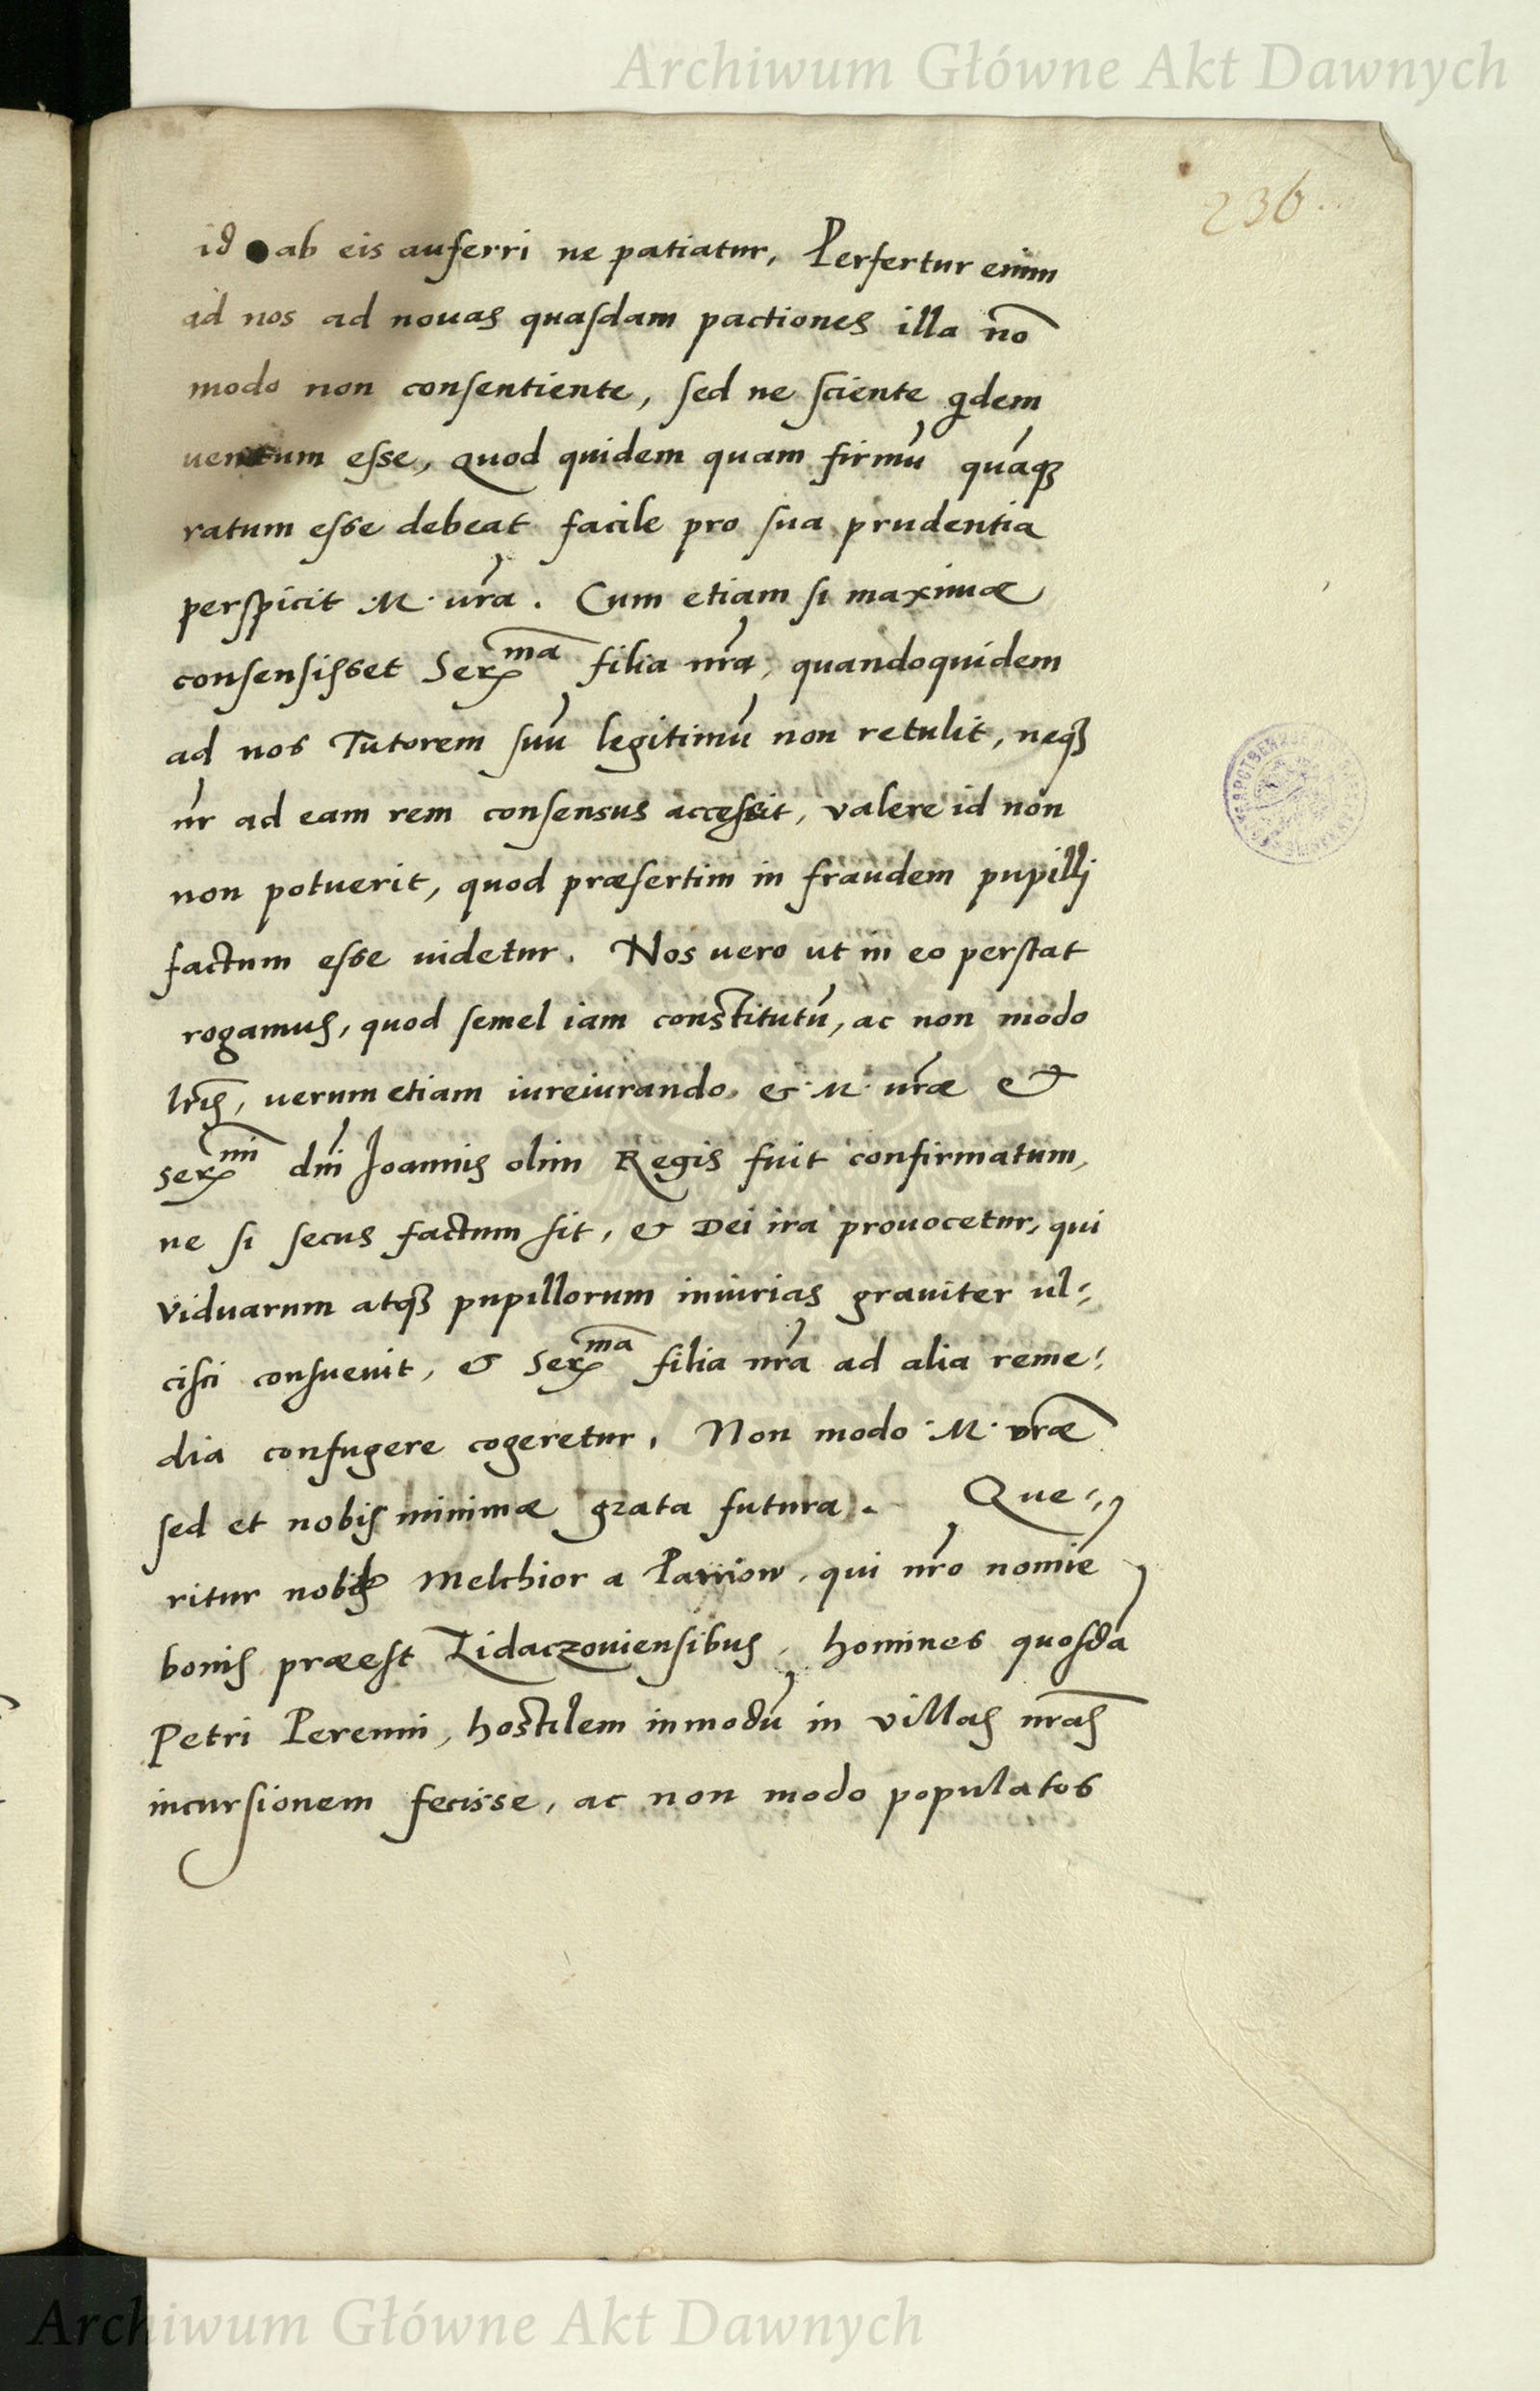 Archiwum Główne Akt Dawnych
236
id ab eis auferri ne patiatur, Perfertur enim
ad nos ad nouas quasdam pactiones illa nō
modo non consentiente, sed ne sciente qdem
uentum esse, Quod quidem quam firmū quāqʒ
ratum esse debeat facile pro sua prudentia
perspicit M. vrā. Cum etiam si maximæ
consensisset Serma filia nrā, quandoquidem
ad nos Tutorem suū legitimū non retulit, neqʒ
nr̄ ad eam rem consensus accessit, valere id non
non potuerit, quod præsertim in fraudem pupilli
factum esse uidetur. Nos vero ut in eo perstat
rogamus, quod semel iam constitutū, ac non modo
lrīs, uerum etiam iureiurando & M. vræ et
sermi dnī Joannis olim Regis fuit confirmatum,
ne si secus factum sit, & Dei ira prouocetur, qui
viduarum atqʒ pupillorum iniurias grauiter ul-
cisci consueuit, & Serma filia nrā ad alia reme-
dia confugere cogeretur, Non modo M. vræ
sed et nobis minimæ grata futura. Que-
ritur Melchior a qui nrō nomīe
bonis præest Zidaczouiensibus, homines quosdā
Petri Perenni, hostilem inmodū in villas nrās
incursionem fecisse, ac non modo populatos
Archiwum Główne Akt Dawnych